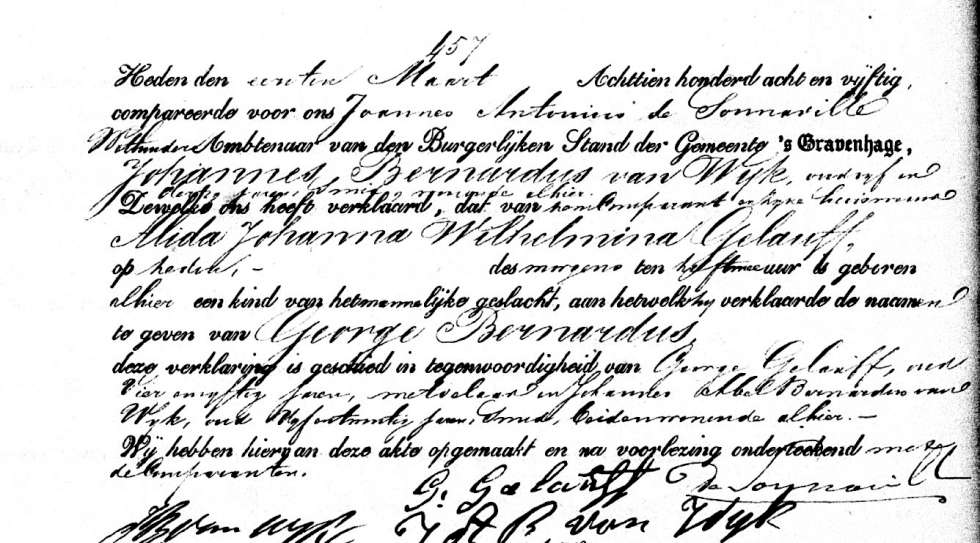 457
Heden den eersten Maart Achttien honderd acht en vijftig,
compareerde voor ons Joannes Antonius de Sonnaville
Wethouder Ambtenaar van den Burgerlijken Stand der Gemeente 's Gravenhage,
Johannes Bernardus van Wyk, oud vijf en
dertig jaren, smid, wonende alhier.
Dewelke ons heeft verklaard, dat van hem Comparant en zijne huisvrouw
Alida Johanna Wilhelmina Gelauff,
op heden, – des morgens ten half twee uur is geboren
alhier een kind van het mannelijke geslacht, aan hetwelk hij verklaarde de naamen
te geven van George Bernardus,
deze verklaring is geschied in tegenwoordigheid van George Gelauff, oud
vier en vijftig jaren, metselaar en Johannes Bernardus van
Wyk, oud jaren, smid, beiden wonende alhier. –
Wij hebben hiervan deze akte opgemaakt en na voorlezing onderteekend met
de Comparanten.
G. Gelauff de Sonnaville
van Wyk